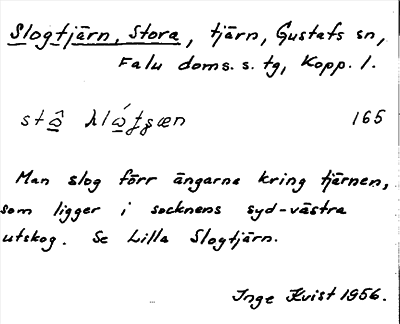 Slogtjärn, Stora, tjärn, Gustafs sn,
Falu doms. s. tg, Kopp. l.
165
Man slog förr ängarna kring tjärnen,
som ligger i socknens syd-västra
utskog. Se Lilla Slogtjärn.
Inge Kvist 1956.